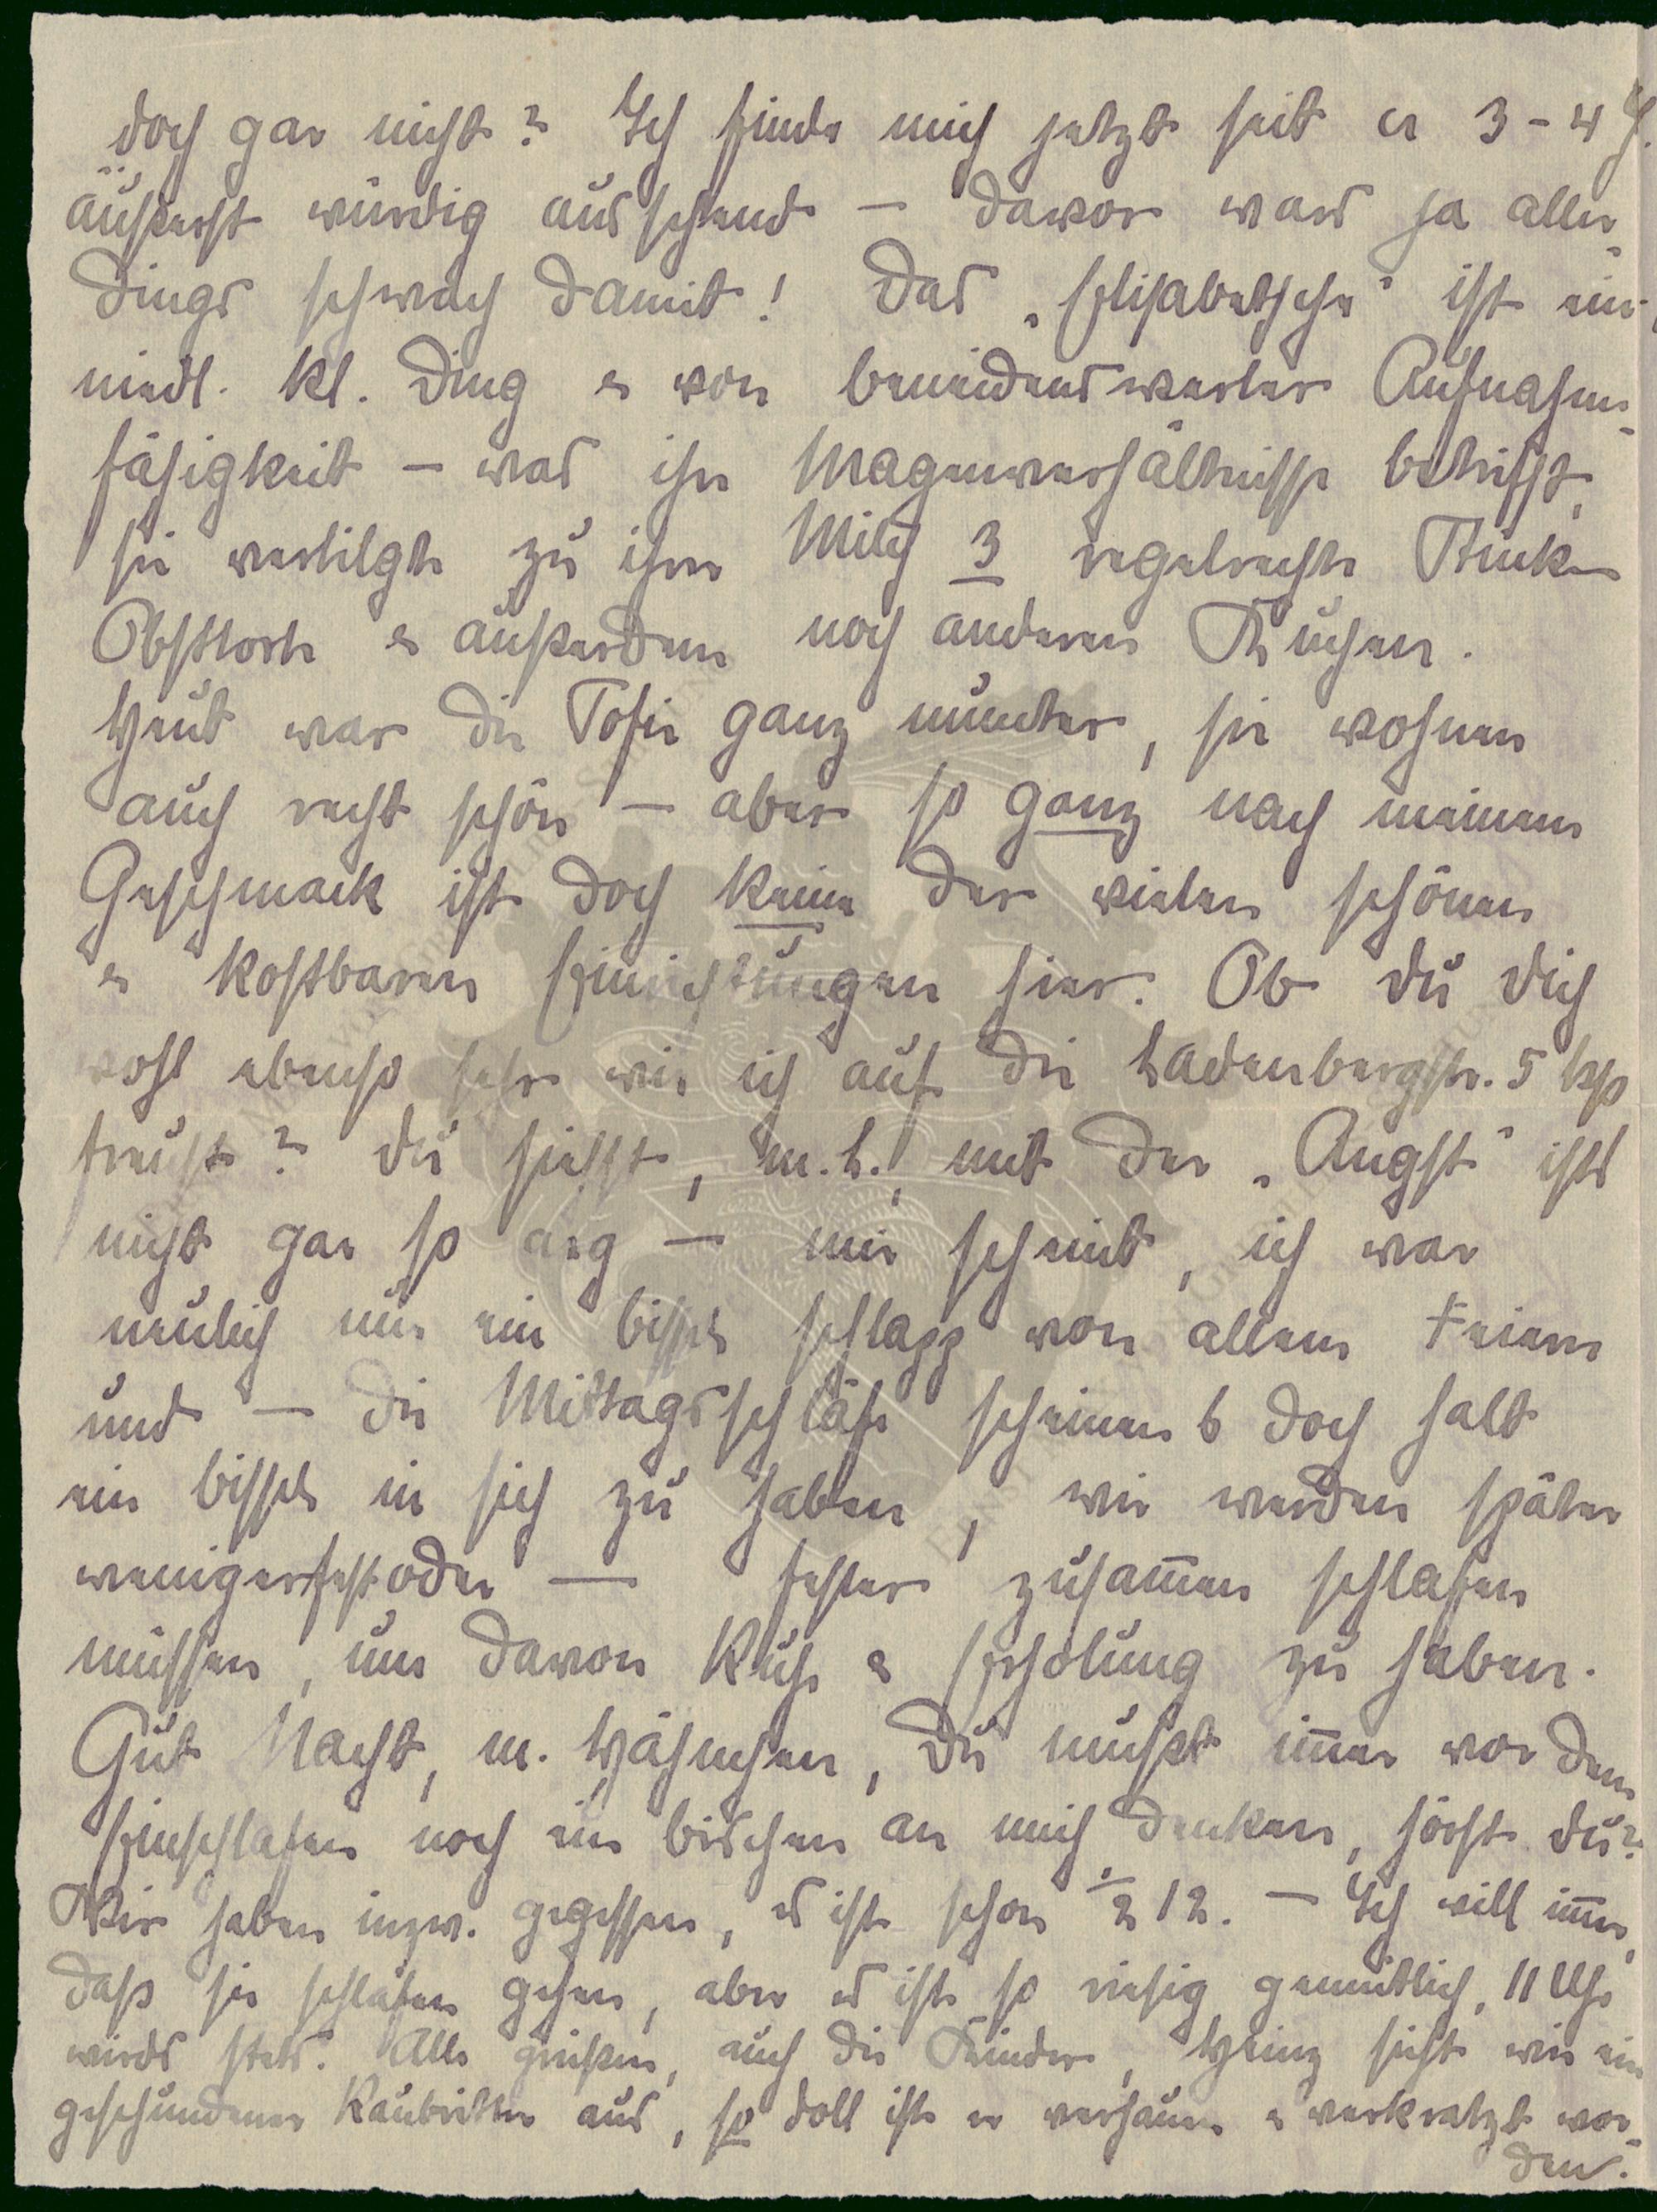 doch gar nicht? Ich finde mich jetzt seit ca 3-4 J.
äußerst würdig aussehend – davor wars ja aller-
dings schwach damit! Das „Elisabethche" ist ein
niedl. kl. Ding & von beneidenswerter Aufnahme-
fähigkeit – was ihre Magenverhältnisse betrifft,
sie vertilgte zu ihrer Milch 3 regelrechte Stücke
Obsttorte & außerdem noch anderen Kuchen.
Heut war die Tosia ganz munter, sie wohnen
auch recht schön – aber so ganz nach meinem
Geschmack ist doch keine der vielen schönen
& kostbaren Einrichtungen hier. Ob du dich
wohl ebenso sehr wie ich auf die Ladenbergstr. 5
freust? Du siehst, m. L., mit der „Angst" ists
nicht gar so arg – mir scheint, ich war
neulich nur ein bissel schlapp von allem Feiern
und – die Mittagsschläfe scheinens doch halt
ein bissel in sich zu haben, wir werden später
weniger fest oder – fester zusammen schlafen
müssen, um davon Ruhe & Erholung zu haben.
Gut Nacht, m. Hähnchen, Du mußt immer vor dem
Einschlafen noch ein bischen an mich denken, hörst du?
Wir haben inzw. gegessen, es ist schon ½ 12. – Ich will immer,
daß sie schlafen gehen, aber es ist so riesig gemütlich, 11 Uhr
wirds stets. Alle grüßen, auch die Kinder, Heinz sieht wie ein
geschundener Raubritter aus, so doll ist er verhauen & verkratzt wor-
den.